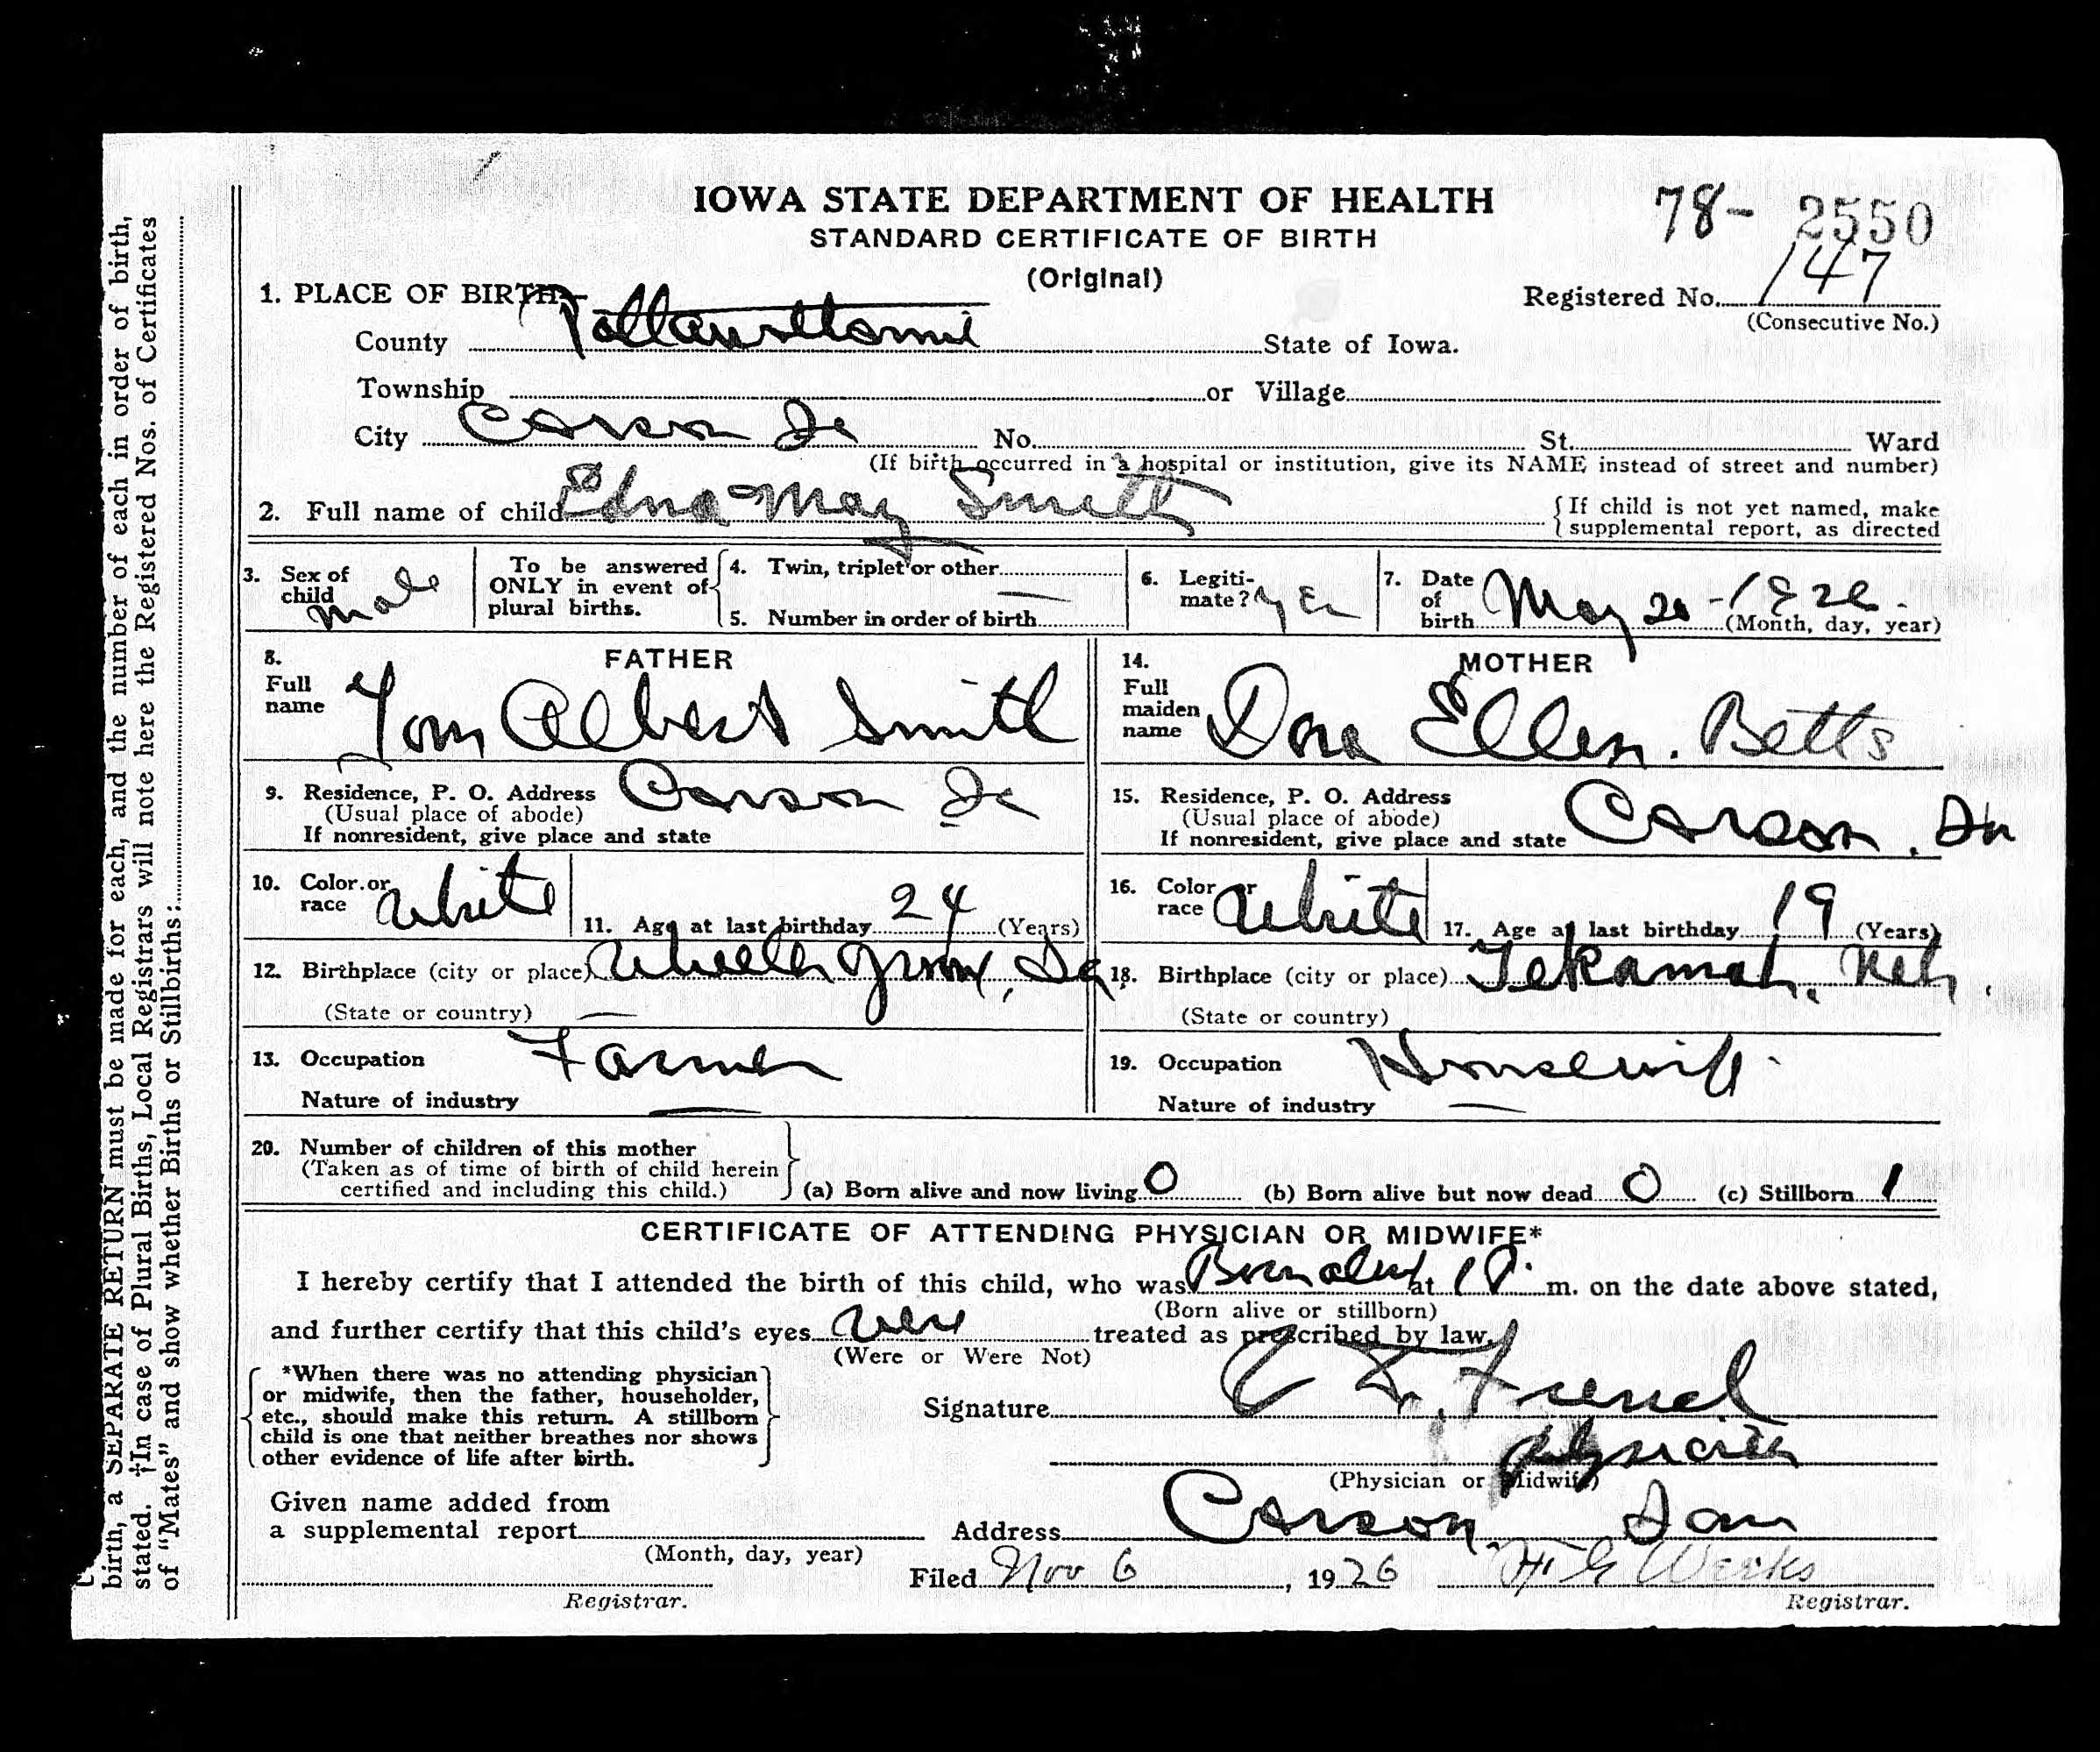 IOWA STATE DEPARTMENT OF HEALTH
78- 2550
STANDARD CERTIFICATE OF BIRTH
(Original)
1. PLACE OF BIRTH—
Registered No. 147
(Consecutive No.)
County Pottawattamie State of Iowa.
Township or Village
City Carson Ia No. St. Ward
(If birth occurred in a hospital or institution, give its NAME instead of street and number)
2. Full name of child Edna May Smith {If child is not yet named, make supplemental report, as directed
3. Sex of child Male
To be answered ONLY in event of plural births.
4. Twin, triplet or other —
5. Number in order of birth
6. Legitimate? Yes
7. Date of birth May 20 - 192 (Month, day, year)
8. FATHER
Full name Tom Albert Smith
9. Residence, P. O. Address Carson Ia
(Usual place of abode)
If nonresident, give place and state
10. Color or race White
11. Age at last birthday 24 (Years)
12. Birthplace (city or place) Wheeler Grove, Ia
(State or country) —
13. Occupation Farmer
Nature of industry —
14. MOTHER
Full maiden name Dora Ellen. Betts
15. Residence, P. O. Address Carson. Ia
(Usual place of abode)
If nonresident, give place and state
16. Color or race White
17. Age at last birthday 19 (Years)
18. Birthplace (city or place) Tekamah. Neb.
(State or country)
19. Occupation Housewife
Nature of industry —
20. Number of children of this mother
(Taken as of time of birth of child herein
certified and including this child.)
(a) Born alive and now living 0 (b) Born alive but now dead 0 (c) Stillborn 1
CERTIFICATE OF ATTENDING PHYSICIAN OR MIDWIFE*
I hereby certify that I attended the birth of this child, who was Born alive at 1 P. m. on the date above stated,
(Born alive or stillborn)
and further certify that this child's eyes were treated as prescribed by law.
(Were or Were Not)
*When there was no attending physician
or midwife, then the father, householder,
etc., should make this return. A stillborn
child is one that neither breathes nor shows
other evidence of life after birth.
Signature
Physician
(Physician or Midwife)
Given name added from
a supplemental report
(Month, day, year)
Address Carson, Iowa
Filed Nov 6, 1926
Registrar.
Registrar.
birth, a SEPARATE RETURN must be made for each, and the number of each in order of birth,
stated. †In case of Plural Births, Local Registrars will note here the Registered Nos. of Certificates
of "Mates" and show whether Births or Stillbirths: